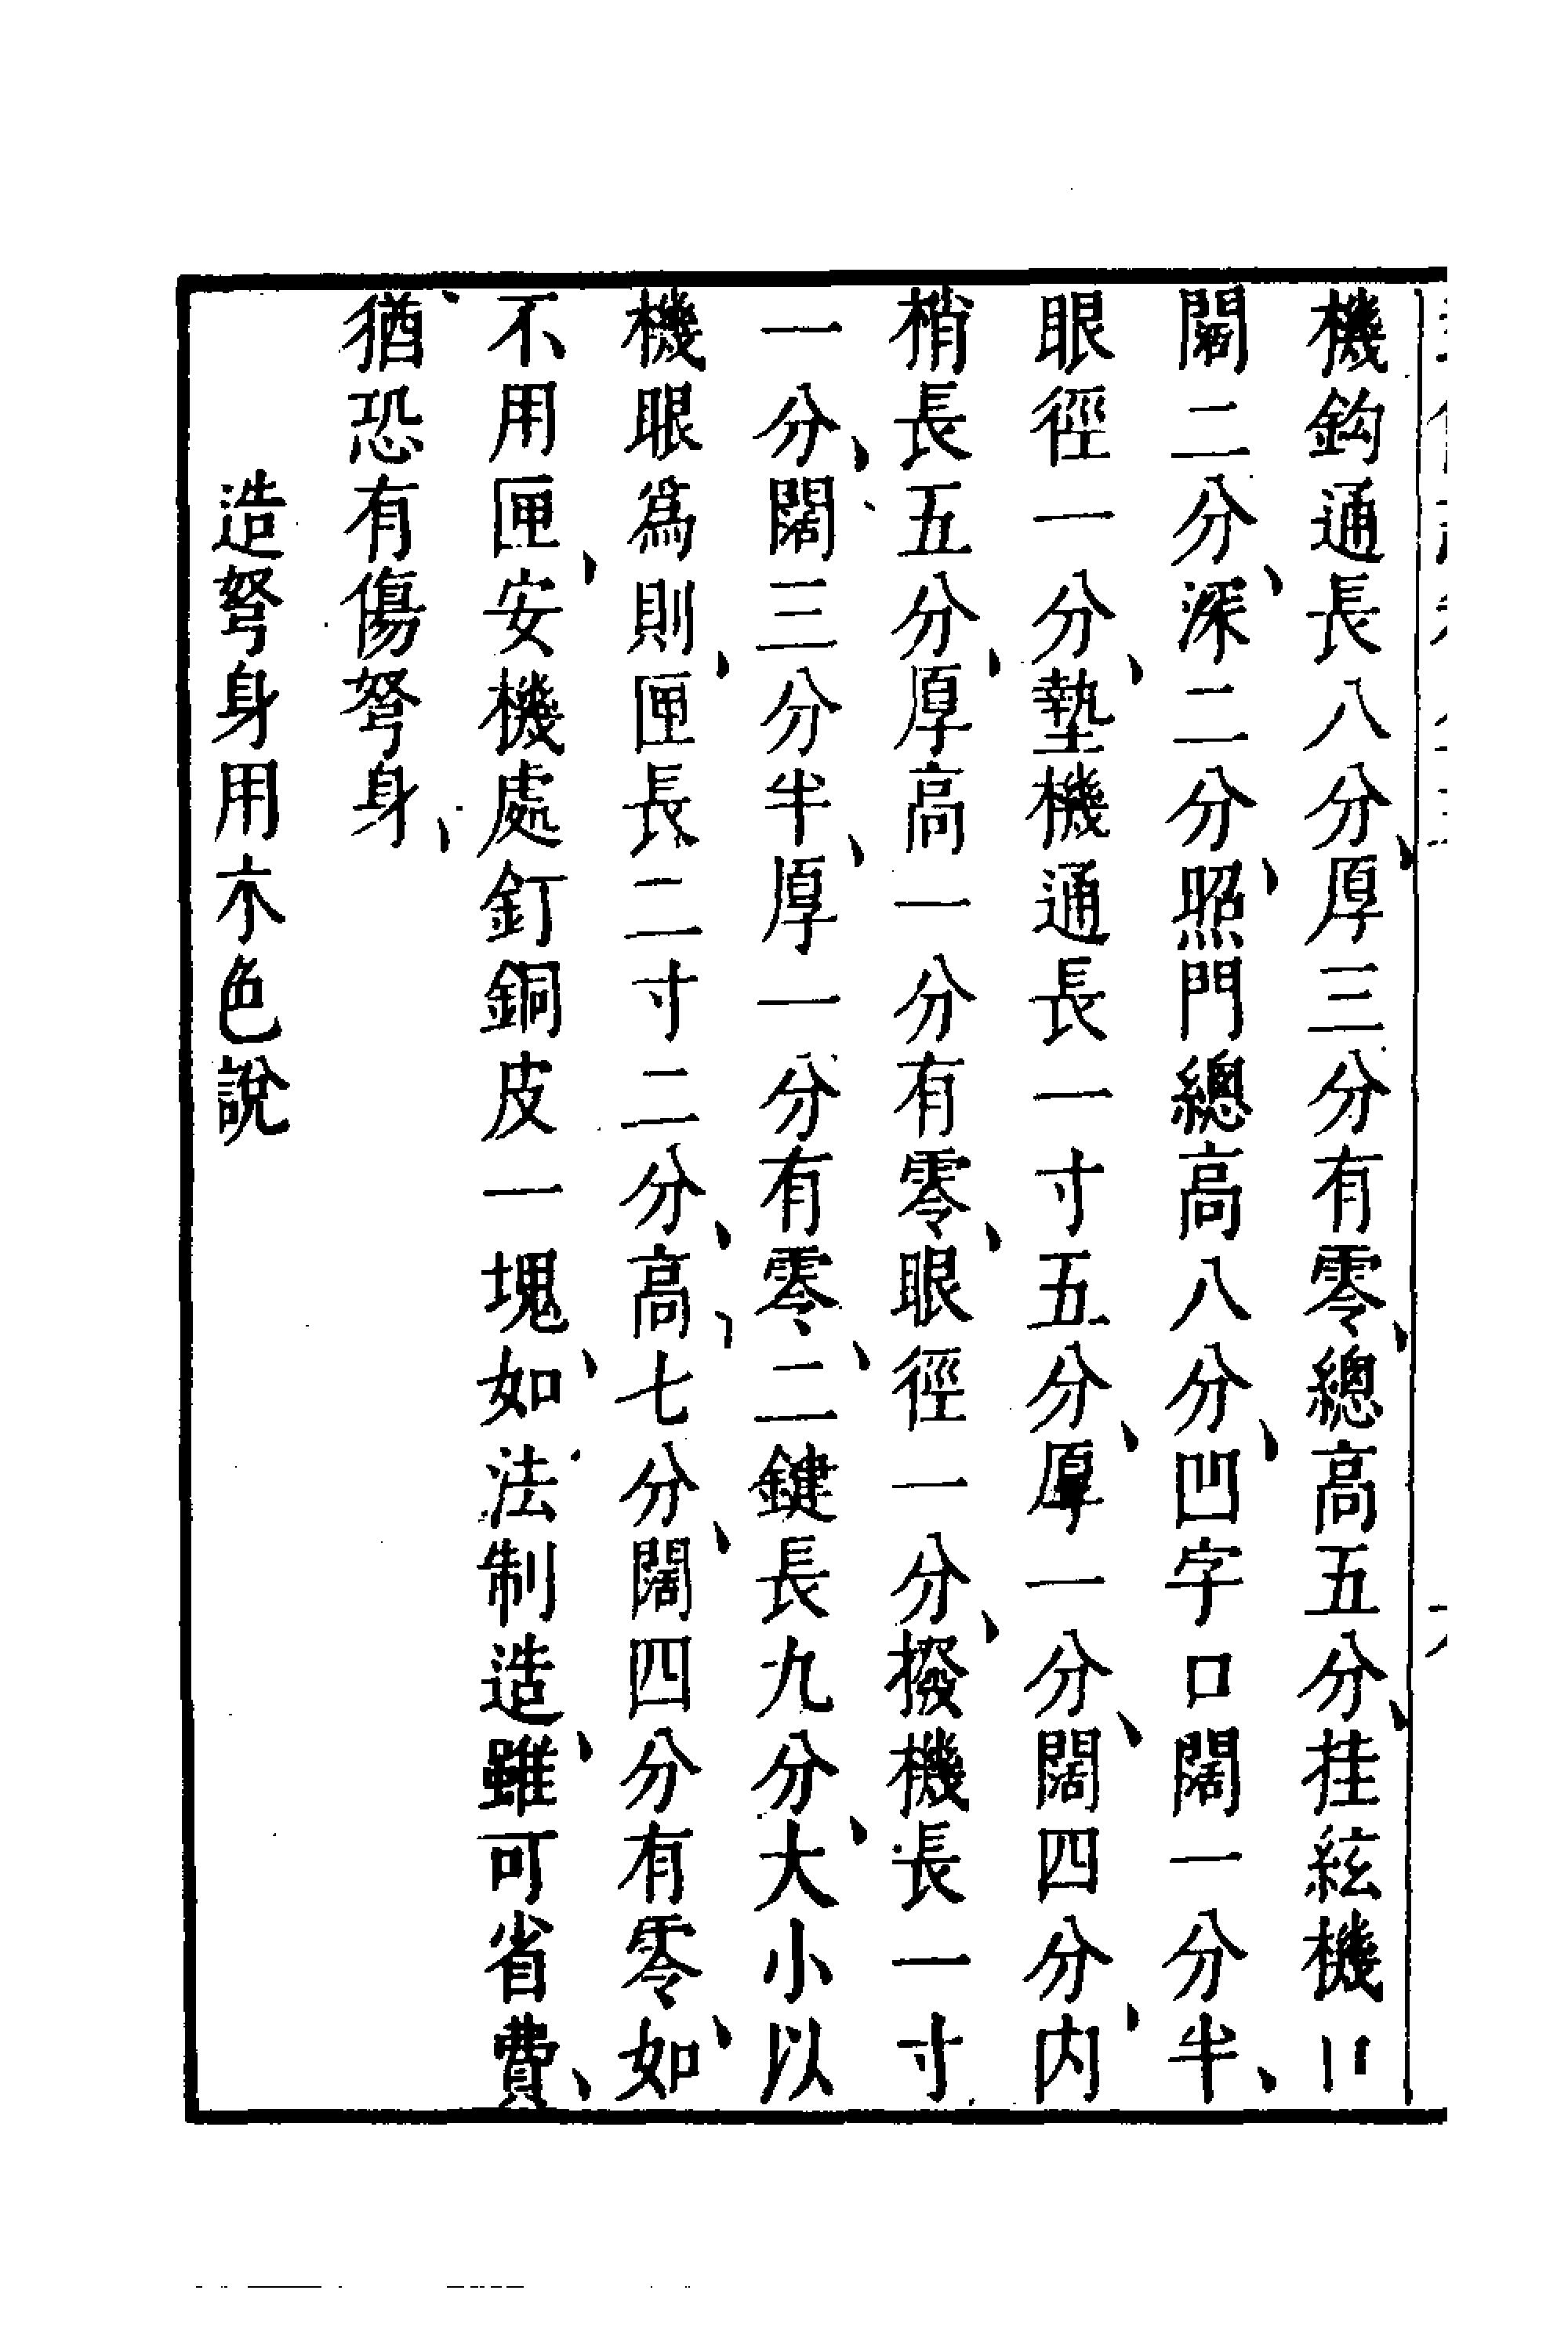 機鈎通長八分、厚三分有零、總高五分、挂絃機口
闊二分、深二分、照門總高八分、凹字口闊一分半、
眼徑一分、墊機通長一寸五分、厚一分、闊四分、内
梢長五分、厚高一分有零、眼徑一分、撥機長一寸
一分、闊三分半、厚一分有零、二鍵長九分、大小以
機眼爲則、匣長二寸二分、高七分、闊四分有零、如
不用匣、安機處釘銅皮一塊、如法制造、雖可省費、
猶恐有傷弩身、
造弩身用木色說